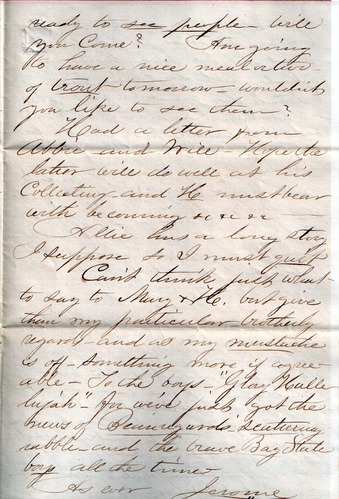 ready to see people will
you Come? Am going
to have a nice meal or two
of trout tomorrow - wouldn't
you like to see them?
Had a letter from
Abbie and Will - Hope the
latter will do well at his
Collecting and H. must bear
with becoming &c &c -
Alice has a long story
I suppose so I must quit
Can't think just what
to say to Mary & C. but give
them my particular brotherly
regard - and as my mustache
is off - something more if agree-
able - To the boys - "Glory Halle-
lujah" - for we've just got the
news of Beauregards scattering
rabble and the brave Bay State
boys all the time
As ever Jerome